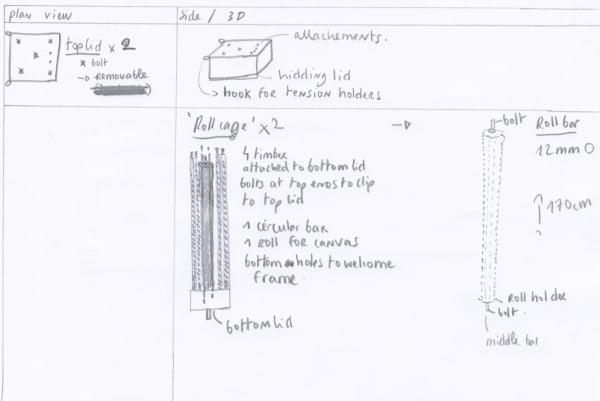 plan view
Side / 3D
top lid x 2
x bolt
→ removable
attachements.
hidding lid
> hook for tension holders
'Roll cage' x 2
→
4 timber
attached to bottom lid
bolts at top ends to clip
to top lid.
1 circular bar
1 roll for canvas
bottom holes to welcome
frame.
bottom lid
bolt
Roll bar
12mm O
170cm
Roll holder
bolt.
middle bar.